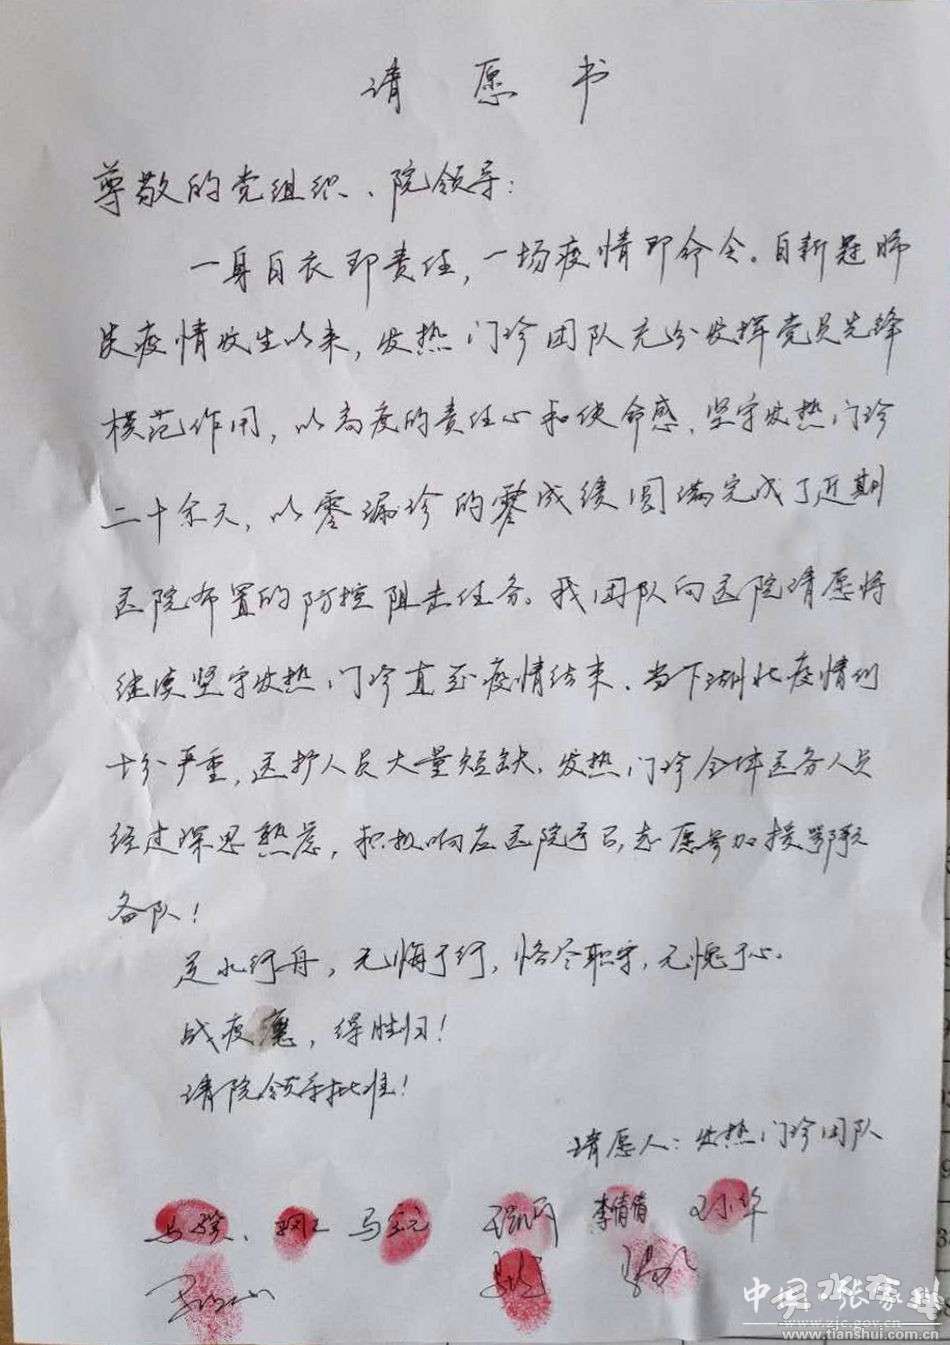 请愿书
尊敬的党组织、院领导:
一身白衣即责任,一场疫情即命令。自新冠肺
炎疫情发生以来,发热门诊团队充分发挥党员先锋
模范作用,以高度的责任心和使命感、坚守发热门诊
二十余天,以零漏诊的零成绩圆满完成了近期
医院布置的防控阻击任务。我团队向医院请愿将
继续坚守发热门诊直至疫情结束、当下湖北疫情仍
十分严重,医护人员大量短缺、发热门诊全体医务人员
经过深思熟虑,积极响应医院号召,志愿参加援鄂预
备队!
逆水行舟,无悔于行,恪尽职守,无愧于心。
战疫魔,得胜归!
请院领导批准!
请愿人:发热门诊团队
李倩倩
中国 张家川
www.zjc.gov.cn
www.tianshui.com.cn